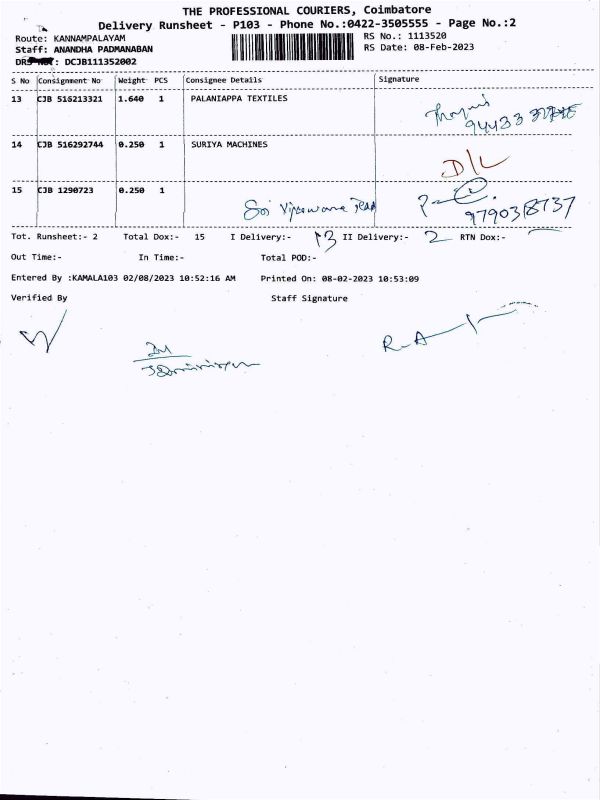 THE PROFESSIONAL COURIERS, Coimbatore
Delivery Runsheet - P103 - Phone No.:0422-3505555 - Page No.:2
Route: KANNAMPALAYAM
RS No.: 1113520
Staff: ANANDHA PADMANABAN
RS Date: 08-Feb-2023
DRS : DCJB111352002
S No Consignment No Weight PCS Consignee Details Signature
13 CJB 516213321 1.640 1 PALANIAPPA TEXTILES
94433
14 CJB 516292744 0.250 1 SURIYA MACHINES
D/L
15 CJB 1290723 0.250 1 Sri
Tot. Runsheet:- 2 Total Dox:- 15 I Delivery:- 13 II Delivery:- 2 RTN Dox:-
Out Time:- In Time:- Total POD:-
Entered By :KAMALA103 02/08/2023 10:52:16 AM Printed On: 08-02-2023 10:53:09
Verified By Staff Signature
R-A